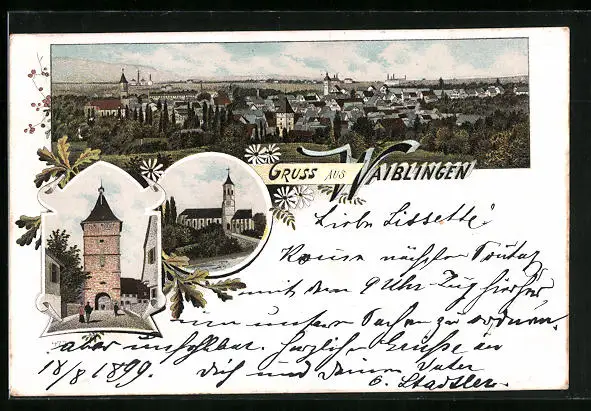 GRUSS AUS WAIBLINGEN
Liebe Lissette!
Komme nächsten
mit dem 9 Uhr Zug hierher
um unsere Sachen zu ordnen.
aber unfehlbar. Herzliche Grüsse an
18/8 1899. Dich und Deinen Vater
C. Stadtler